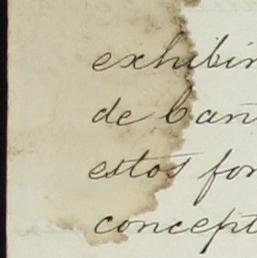 exhibir
de ban
estos for
concept